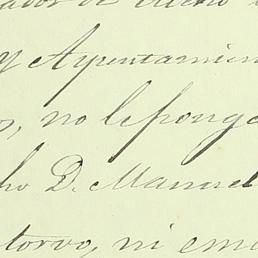 y Ayuntamien
s, no le ponga
ho D. Manuel
torvo, ni em